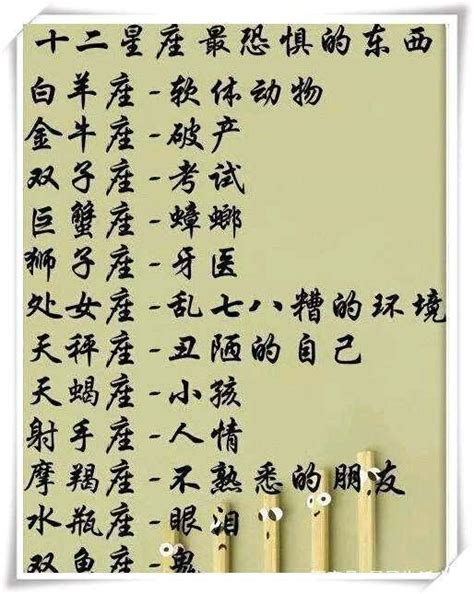 十二星座最恐惧的东西
白羊座-软体动物
金牛座-破产
双子座-考试
巨蟹座-蟑螂
狮子座-牙医
处女座-乱七八糟的环境
天秤座-丑陋的自己
天蝎座-小孩
射手座-人情
摩羯座-不熟悉的朋友
水瓶座-眼泪
双鱼座-鬼